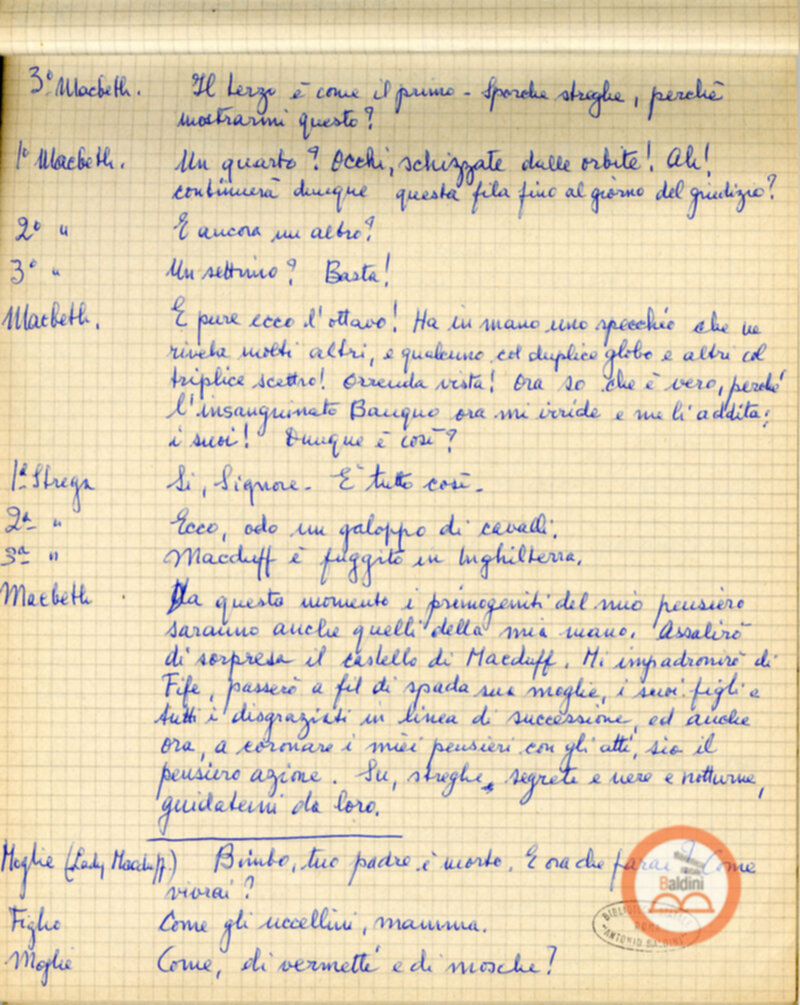 3º Macbeth. Il terzo è come il primo - Sporche streghe, perchè
mostrarmi questo?
1º Macbeth. Un quarto? Occhi, schizzate dalle orbite! Ah!
continuerà dunque questa fila fino al giorno del giudizio?
2º " E ancora un altro?
3º " Un settimo? Basta!
Macbeth. E pure ecco l'ottavo! Ha in mano uno specchio che ne
rivela molti altri, e qualcuno col duplice globo e altri col
triplice scettro! Orrenda vista! Ora so che è vero, perchè
l'insanguinato Banquo ora mi irride e me li addita:
i suoi! Dunque è così?
1ª Strega Sì, Signore - E' tutto così -
2ª " Ecco, odo un galoppo di cavalli.
3ª " Macduff è fuggito in Inghilterra.
Macbeth Da questo momento i primogeniti del mio pensiero
saranno anche quelli della mia mano. Assalirò
di sorpresa il castello di Macduff. Mi impadronirò di
Fife, passerò a fil di spada sua moglie, i suoi figli e
tutti i disgraziati in linea di successione, ed anche
ora, a coronare i miei pensieri con gli atti, sia il
pensiero azione. Su, streghe, segrete e nere e notturne,
guidatemi da loro.
Moglie (Lady Macduff) Bimbo, tuo padre è morto. E ora che farai? Come
vivrai?
Figlio Come gli uccellini, mamma.
Moglie Come, di vermetti e di mosche?
Biblioteca
Baldini
BIBLIOTECA
ROMA
"ANTONIO BALDINI"